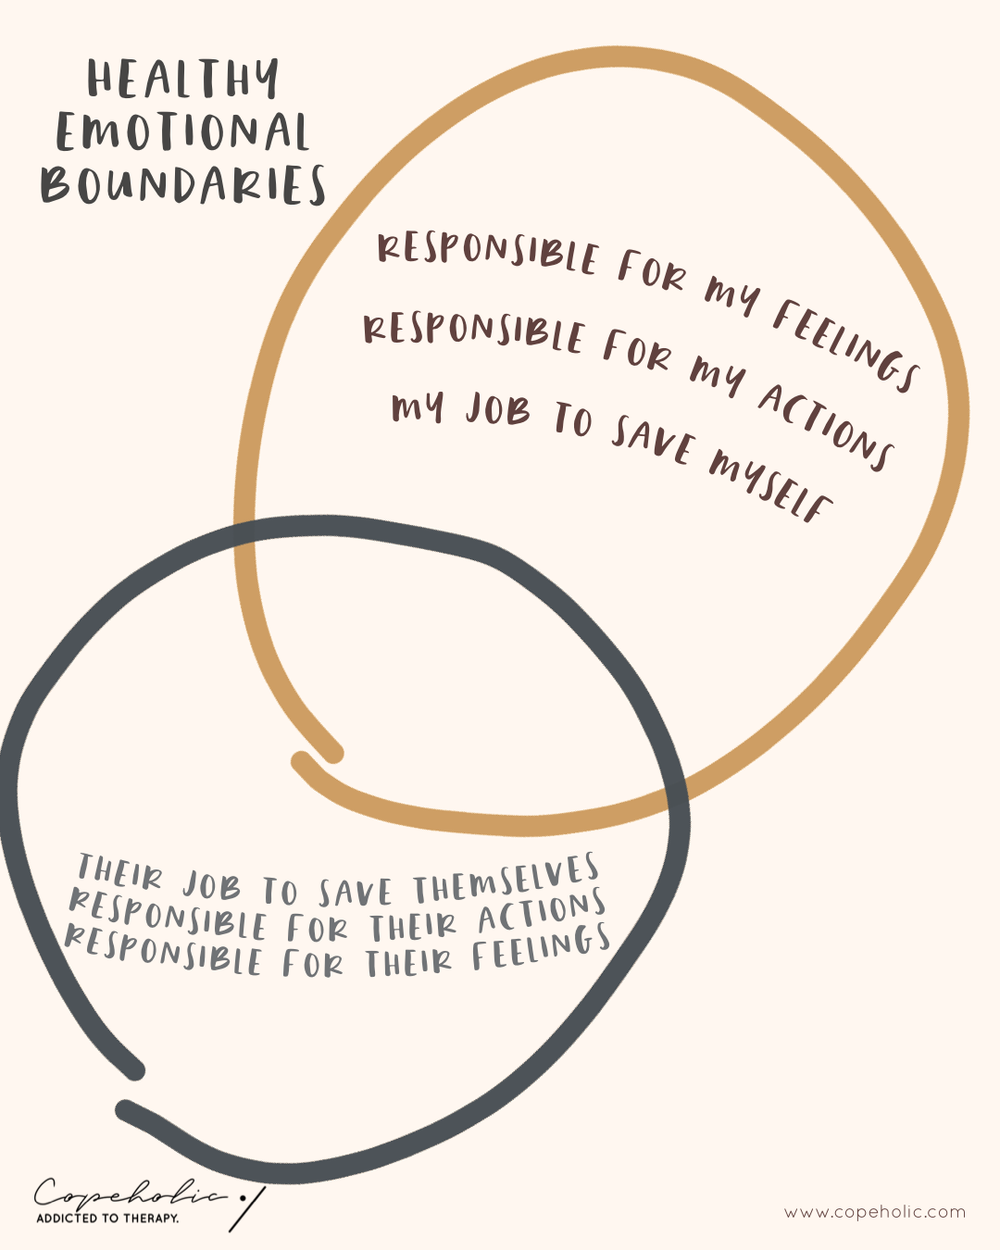 HEALTHY
EMOTIONAL
BOUNDARIES
RESPONSIBLE FOR MY FEELINGS
RESPONSIBLE FOR MY ACTIONS
MY JOB TO SAVE MYSELF
THEIR JOB TO SAVE THEMSELVES
RESPONSIBLE FOR THEIR ACTIONS
RESPONSIBLE FOR THEIR FEELINGS
Copeholic
ADDICTED TO THERAPY.
www.copeholic.com